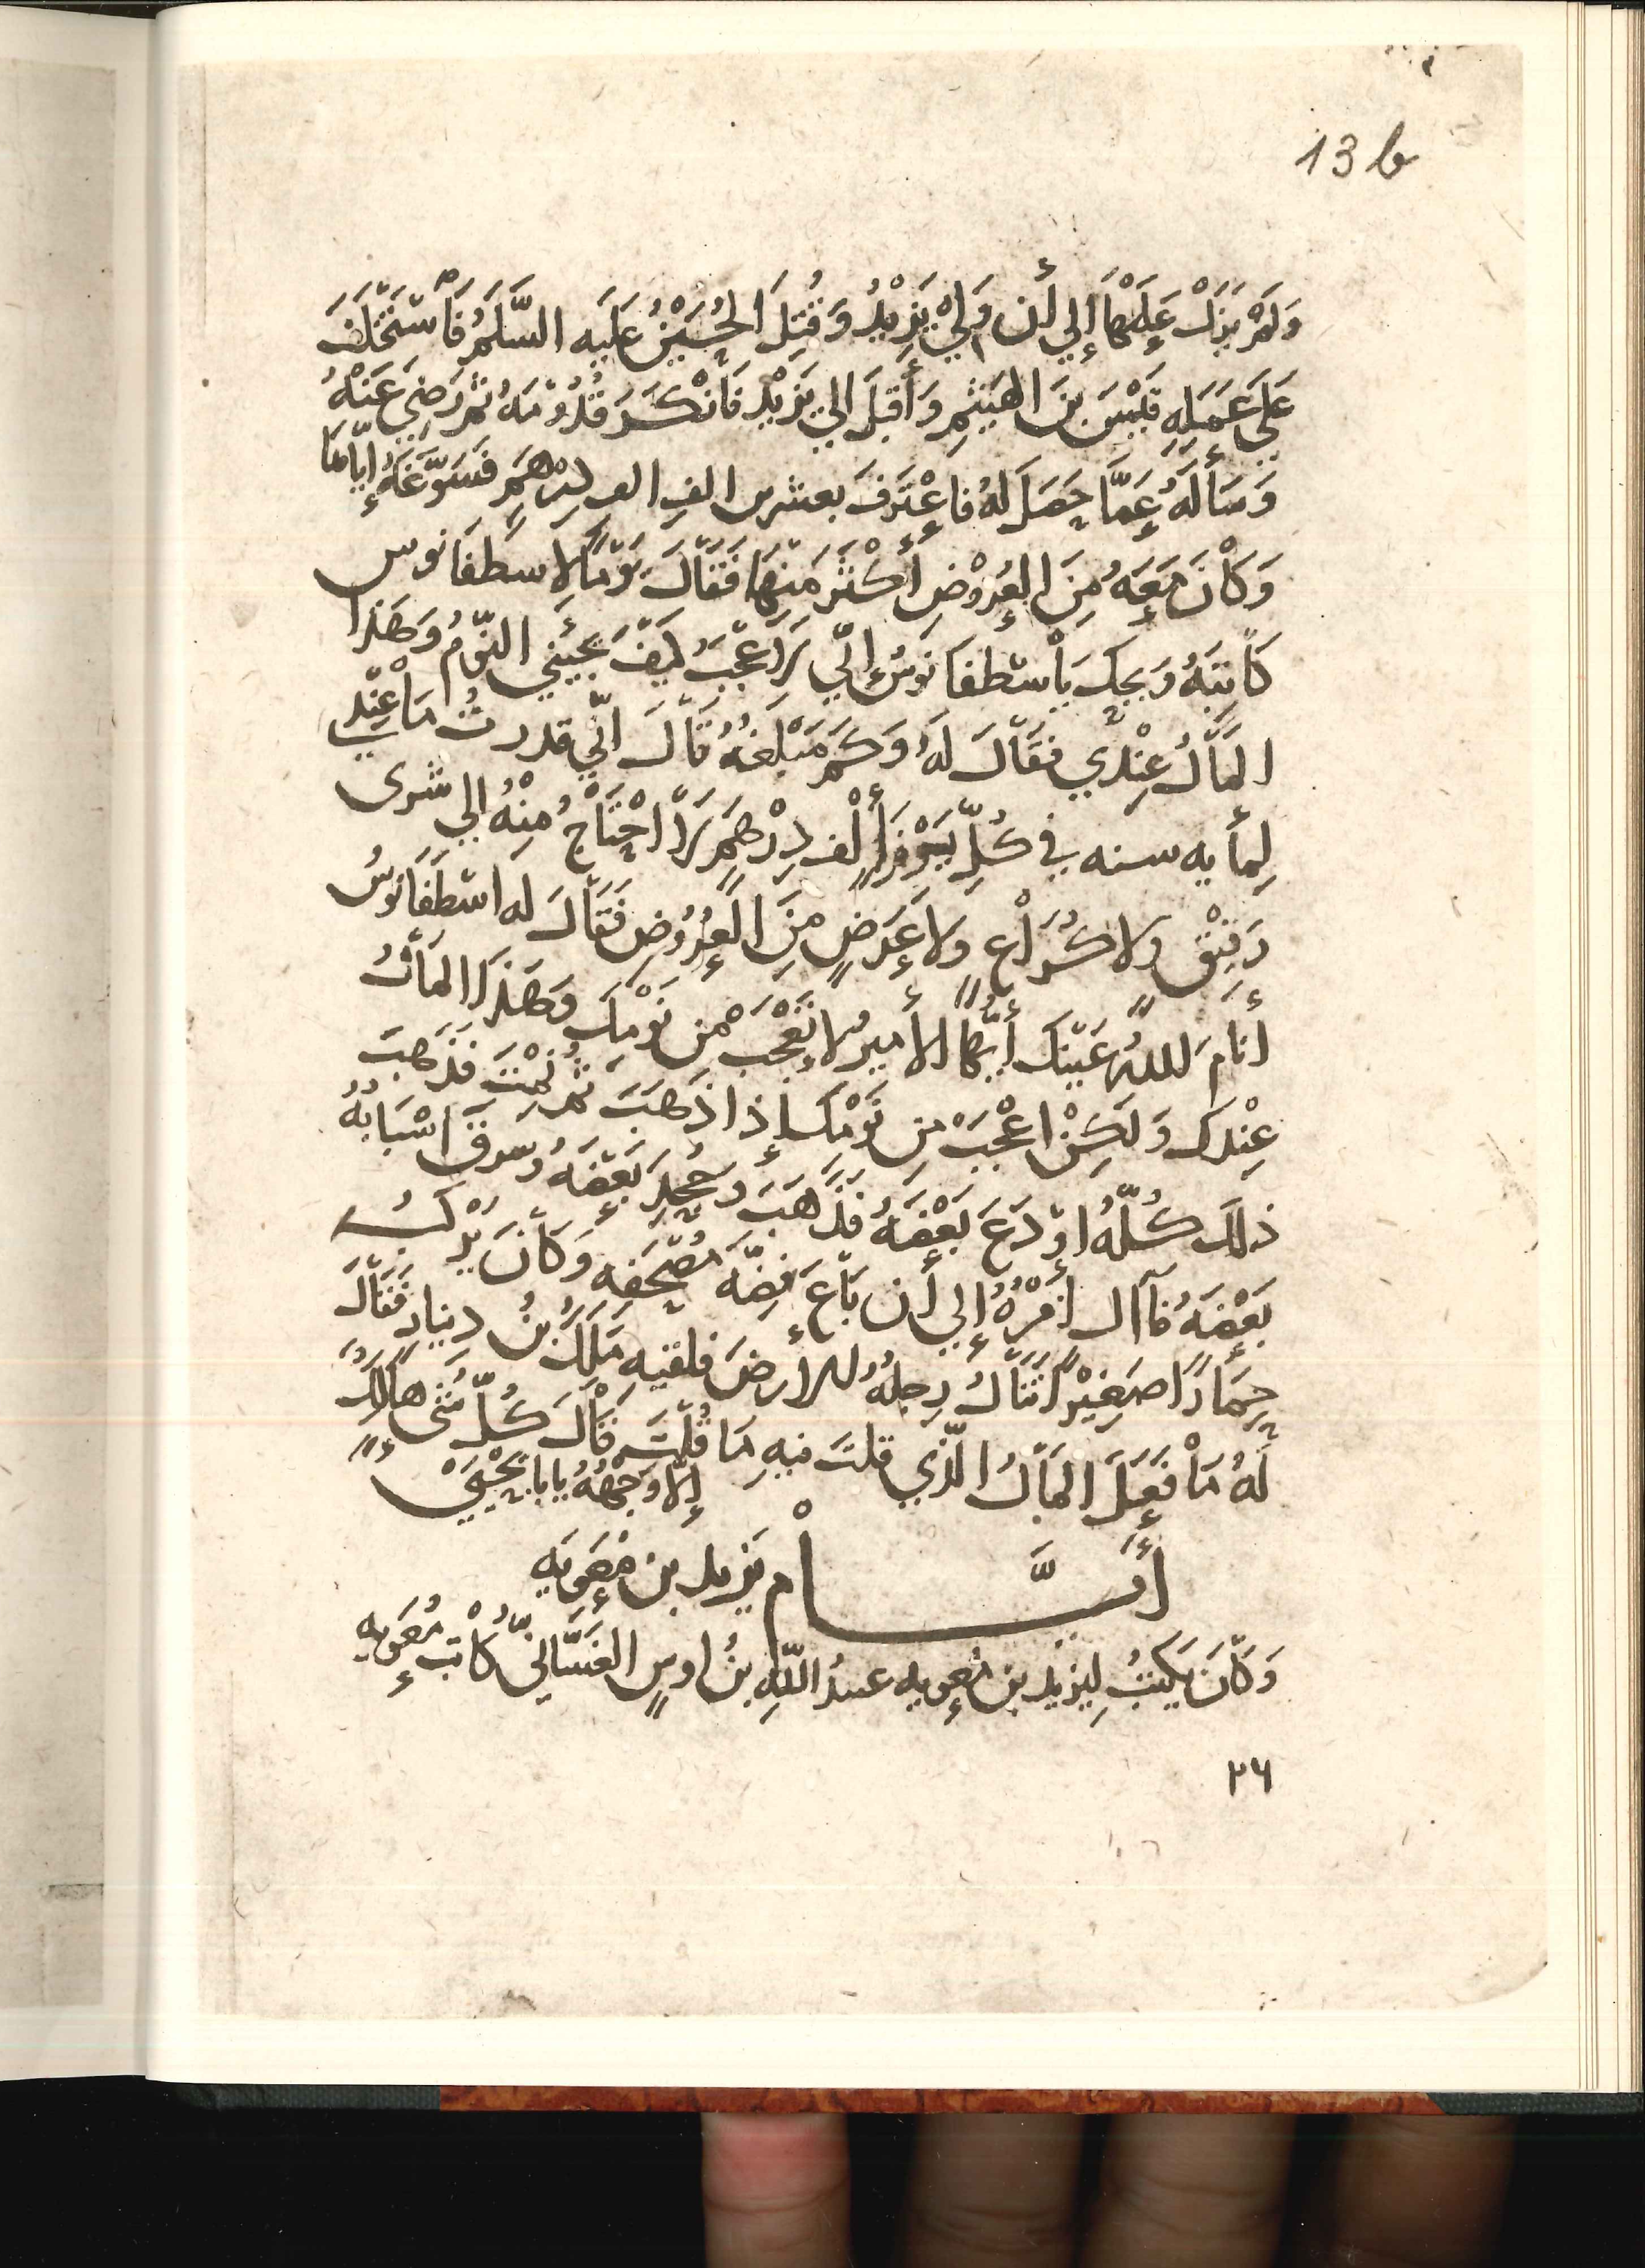 13 b
وَلَمْ يَزَلْ عَلَيْهَا إِلي أَن وَلِيْ يَزِيْدُ وَقُتِلَ الحُسَيْنُ عَلَيه السَّلَمُ فَاسْتَخْلَفَ
عَلَي عَمَلِهِ قَيْسَ بنَ الهَيْثَمِ وَأَقبَلَ الي يَزِيْد فَأَنْكَرَ قُدُوْمَهُ ثم رَضِيَ عَنْهُ
وَسَألَهُ عَمَّا حَصَلَ لهُ فاعْتَرَفَ بعشرين الفِ الف دِرْهَمِ فَسَوَّغَهُ إِيّاهَا
وَكَانَ مَعَهُ مِنَ العُرُوْضِ أَكْثَر مِنهَا فَقَالَ يَوْمًا لاسطفَانوس
كَاتِبَهُ وَيحكَ يَا اسْطفَانوسُ إنّي لاَعْجَبُ كيفَ يجيئني النّومُ وَهَذا
المَالُ عِنْدِي فقَالَ لَهُ وَكَم مَبْلَغهُ قَالَ انّي قدرتُ مَا عِنْدِي
لِمأيه سنه في كُلّ يَوْمٍ أَلْف دِرْهَمٍ لاَ احْتَاجُ مِنْهُ إلي شرى
رَقِيْقٍ ولا كُرَاْعٍ ولا عَرَضٍ مِنَ العُرُوْضِ فَقَالَ له اسْطَفَانوسُ
أنامَ اللهُ عَيْنَك أيُّها الأميرُ لا تَعْجَب مِن نَوْمِكَ وَهَذَا المَالُ
عِنْدك وَلَكِنْ اعْجَبْ مِن نَوْمِكَ إذا ذَهَبَ ثم نِمْتَ فَذَهَبَ
ذلكَ كُلّهُ اوْدَعَ بَعْضَهُ فَذَهَبَ وَجُحِدَ بَعْضَهُ وسرقَ اسْبَابُهُ
بَعْضَهُ فآال أمْرُهُ إلي أن بَاعَ فِضَّه مُصْحَفِهِ وَكَانَ يَرْكَبُ
حِمَارًا صَغِيْرًا تَنَالُ رِجلَهُ الأرضَ فلقيه مَلكُ بْنُ دِينارٍ فَقَالَ
لَهُ مَا فَعَلَ المَالُ الّذِي قلتَ فيهِ مَا قُلْتَ قَالَ كُلّ شئ هَالِكٌ
إلّا وَجْهُهُ يا با يَحْيَى
أَيَّـــــام يَزيد بن مُعَويه
وَكَانَ يَكتُبُ لِيزيد بن مُعويه عبدُ اللّهِ بنُ اوسٍ الغسَّانيّ كَاتب مُعَويه
٢٦